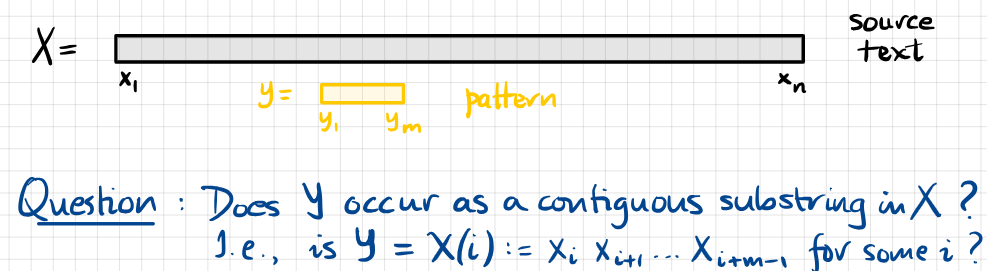 X = source
text
x₁ xₙ
y = pattern
y₁ yₘ
Question : Does y occur as a contiguous substring in X ?
I.e., is y = X(i) := xᵢ xᵢ₊₁ ... xᵢ₊ₘ₋₁ for some i ?